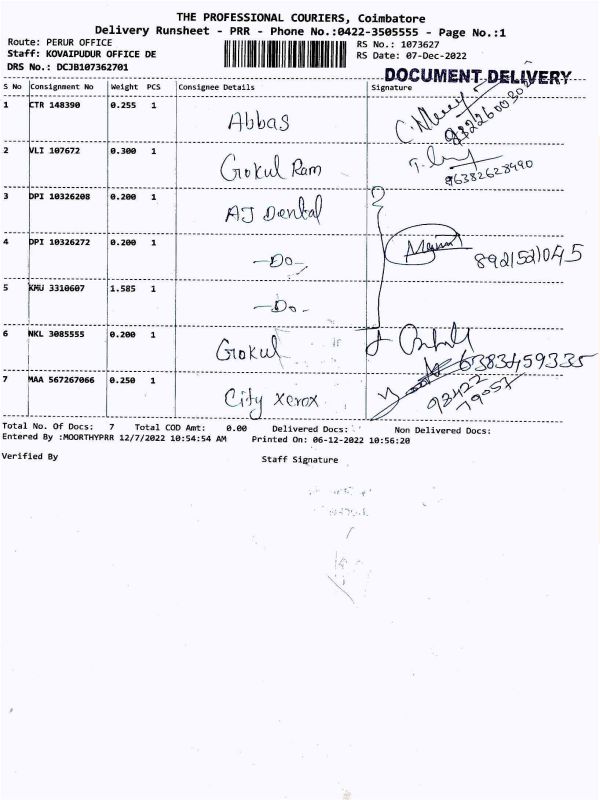 THE PROFESSIONAL COURIERS, Coimbatore
Delivery Runsheet - PRR - Phone No.:0422-3505555 - Page No.:1
Route: PERUR OFFICE RS No.: 1073627
Staff: KOVAIPUDUR OFFICE DE RS Date: 07-Dec-2022
DRS No.: DCJB107362701
DOCUMENT DELIVERY
S No Consignment No Weight PCS Consignee Details Signature
1 CTR 148390 0.255 1 Abbas
2 VLI 107672 0.300 1 Gokul Ram
96382628490
3 DPI 10326208 0.200 1 AJ Dental
4 DPI 10326272 0.200 1 -Do- 8921521045
5 KMU 3310607 1.585 1 -Do-
6 NKL 3085555 0.200 1 Gokul
6383459335
7 MAA 567267066 0.250 1 City Xerox 93422
79057
Total No. Of Docs: 7 Total COD Amt: 0.00 Delivered Docs: Non Delivered Docs:
Entered By :MOORTHYPRR 12/7/2022 10:54:54 AM Printed On: 06-12-2022 10:56:20
Verified By Staff Signature